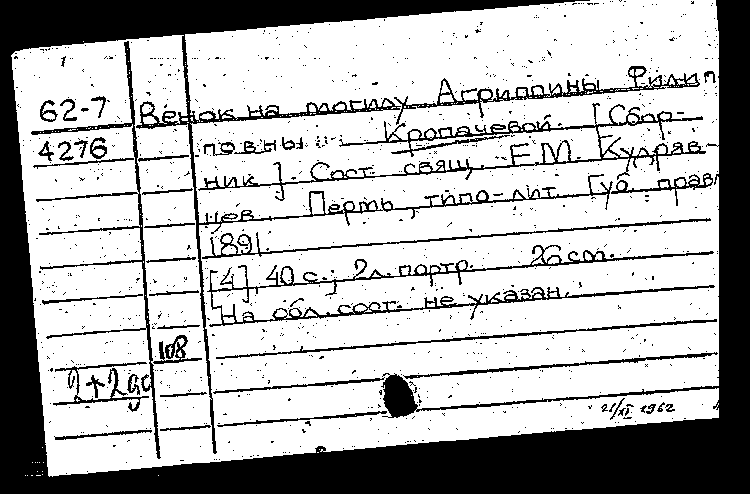 62-7 Венок на могилу Агриппины Филип
4276 повны Кропачевой. [Сбор-
ник]. Сост. свящ. Е.М. Кудряв-
цев. Пермь, типо-лит. Губ. правл
1891.
[4], 40 с.; 2л. портр. 26 cm.
На обл. сост. не указан.
108
21/XI 1962